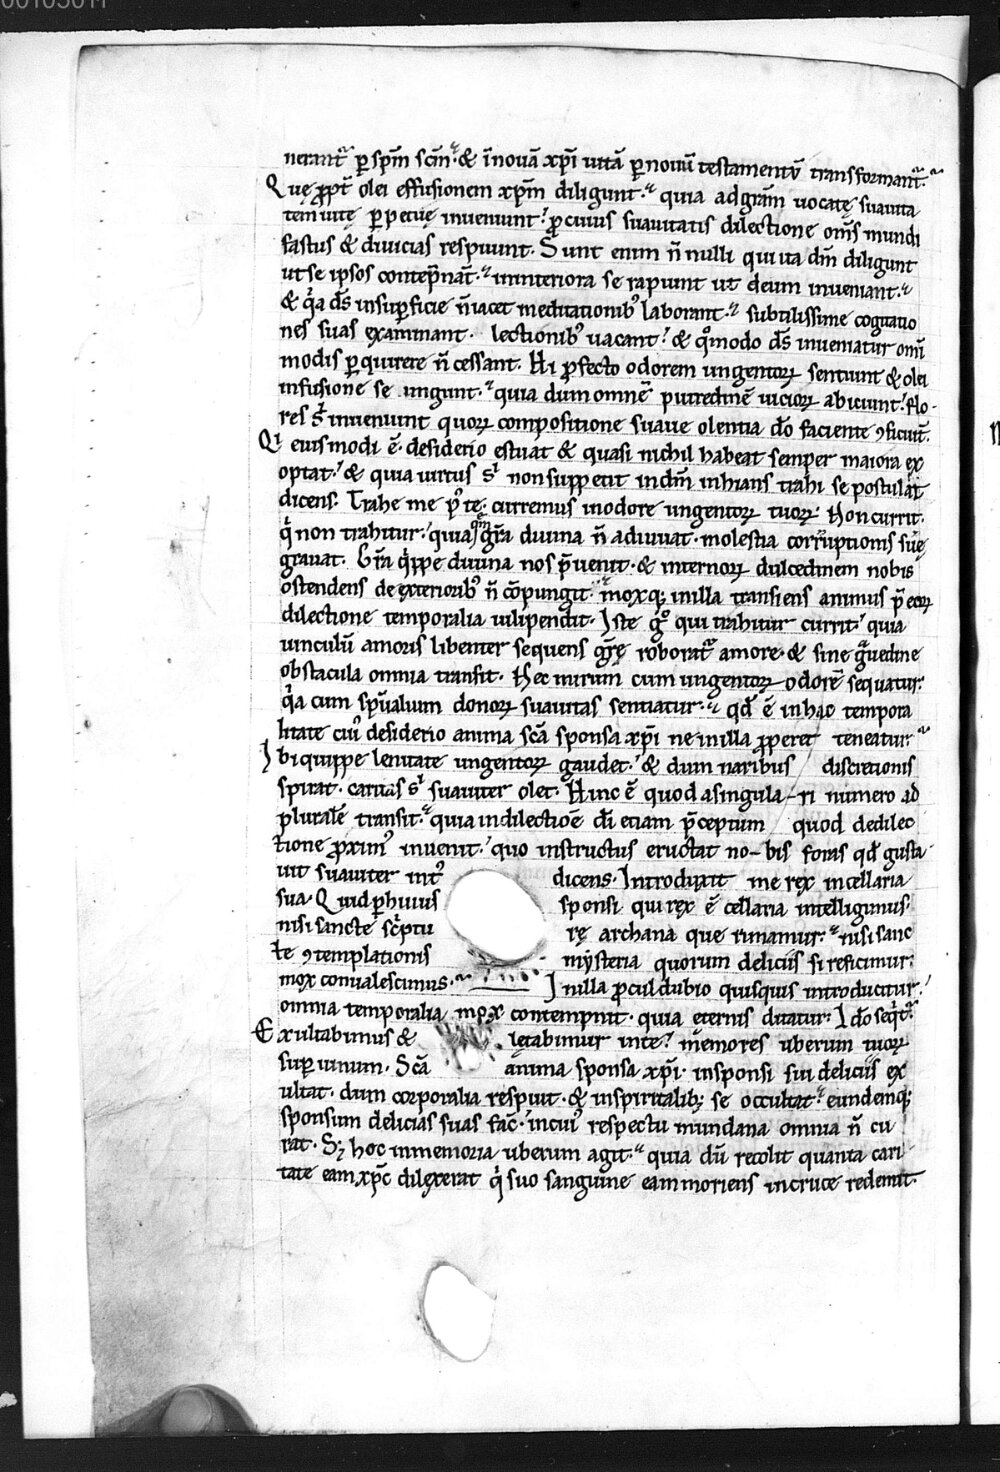 nerant᷑ ꝑ spm̄ scm̄. & īnouā xp̄i uitā ꝑ nouū testamentū transformant᷑.
Quę ꝓpt̄ olei effusionem xp̄m diligunt. quia ad gr̄am uocatę suauita
tem uitę ꝑpetuę inueniunt. ꝓ cuius suauitatis dilectione om̄s mundi
fastus & diuicias respuunt. Sunt enim n̄ nulli qui ita dm̄ diligunt
ut se ipsos contēpnāt. in interiora se rapiunt ut deum inueniant.
& q̇a ds̄ in suꝑficie n̄ iacet meditationibꝰ laborant. subtilissime cogitatio
nes suas examinant. lectionibꝰ uacant. & q̊modo ds̄ inueniatur om̄i
modis ꝑquirere n̄ cessant. Hi ꝓfecto odorem ungentoꝝ sentiunt & olei
infusione se ungunt. quia dum omnē putredinē uicioꝝ abiciunt. flo
res s̄ inueniunt quoꝝ compositione suaue olentia dō faciente ꝯficiunt᷑.
Qi eiusmodi ē. desiderio estuat & quasi nichil habeat semper maiora ex
optat. & quia uirtus s̄ non suppetit in dm̄ inhians trahi se postulat
dicens. Trahe me p̊ te. curremus in odore ungentoꝝ tuoꝝ. Non currit.
q̇ non trahitur. quia quē gr̄a diuina n̄ adiuuat. molestia corruptionis suę
grauat. Gr̄a q̇ppe diuina nos p̄uenit. & internoꝝ dulcedinem nobis
ostendens de exterioribꝰ n̄ cōpungit. moxq; in illa transiens animus p̄ eoꝝ
dilectione temporalia uilipendit. Iste g̊ qui trahitur currit. quia
uinculū amoris libenter sequens gr̄ę roborat᷑ amore. & sine g̾uedine
obstacula omnia transit. Hec mirum cum ungentoꝝ odorē sequatur.
q̇a cum sp̄ualium donoꝝ suauitas sentiatur. qd̄ ē in hac tempora
litate ciuꝰ desiderio anima scā sponsa xp̄i ne in illa ꝓperet teneatur.
Ibi quippe lenitate ungentoꝝ gaudet. & dum naribus discretionis
spirat. caritas s̄ suauiter olet. Hinc ē quod a singulari numero ad
pluralē transit. quia in dilectiōe dī etiam p̄ceptum quod de dilec
tione ꝓximi inuenit. quo instructus eructat nobis foras qd̄ gusta
uit suauiter int᷑ dicens. Introduxit me rex in cellaria
sua. Quid ꝑ huius sponsi qui rex ē cellaria intelligimus.
nisi sancte sc̄ptu rę archana que rimamur. nisi sanc
te ꝯtemplationis mysteria quorum deliciis si reficimur.
mox conualescimus. In illa procul dubio quisquis introducitur.
omnia temporalia mox contempnit. quia eternis ditatur. Idō seq̇t᷑.
Exultabimus & lętabimur in te. memores uberum tuoꝝ
suꝑ uinum. Scā anima sponsa xp̄i. in sponsi sui deliciis ex
ultat. dum corporalia respuit. & in spiritalibꝫ se occultat. eundemq;
sponsum delicias suas fac̄. in cuiꝰ respectu mundana omnia n̄ cu
rat. Sꝫ hoc in memoria uberum agit. quia dū recolit quanta cari
tate eam xp̄c dilexerat q̇ suo sanguine eam moriens in cruce redemit.